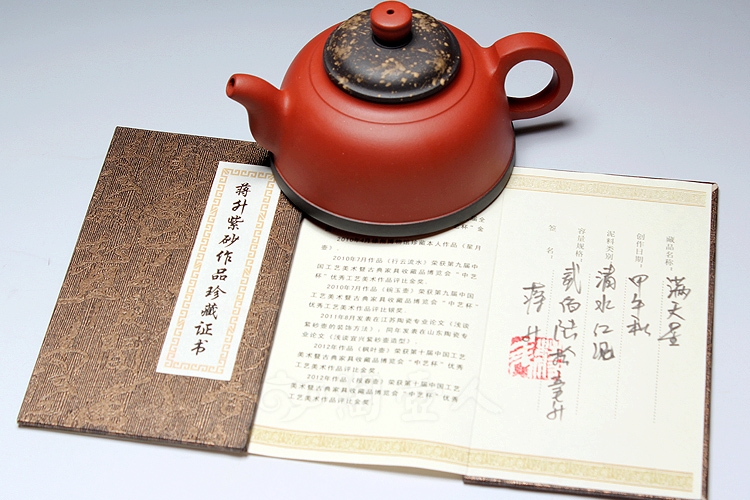 蒋升紫砂作品珍藏证书
2010年7月作品《行云流水》荣获第九届中
国工艺美术暨古典家具收藏品博览会“中艺
杯”优秀工艺美术作品评比金奖。
2010年7月作品《碗玉壶》荣获第九届中国
工艺美术暨古典家具收藏品博览会“中艺杯”
优秀工艺美术作品评比银奖。
2011年8月发表在江苏陶瓷专业论文《浅谈
紫砂壶的装饰方法》，同年发表在山东陶瓷专
业论文《浅谈宜兴紫砂壶造型》。
2012年作品《枫叶壶》荣获第十届中国工艺
美术暨古典家具收藏品博览会“中艺杯”优秀
工艺美术作品评比金奖。
2012年作品《报春壶》荣获第十届中国工艺
美术暨古典家具收藏品博览会“中艺杯”优秀
工艺美术作品评比金奖。
藏品名称：满天星
创作日期：甲午秋
泥料类别：清水红泥
容量规格：贰佰
签 名：蒋升